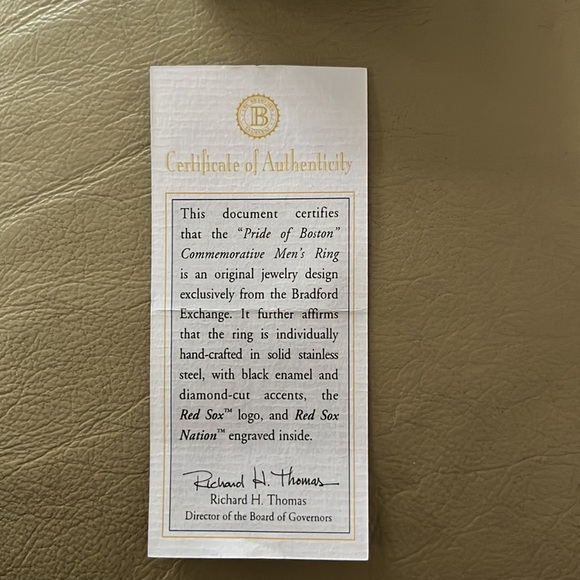 B
Certificate of Authenticity
This document certifies
that the "Pride of Boston"
Commemorative Men's Ring
is an original jewelry design
exclusively from the Bradford
Exchange. It further affirms
that the ring is individually
hand-crafted in solid stainless
steel, with black enamel and
diamond-cut accents, the
Red Sox™ logo, and Red Sox
Nation™ engraved inside.
Richard H. Thomas
Richard H. Thomas
Director of the Board of Governors